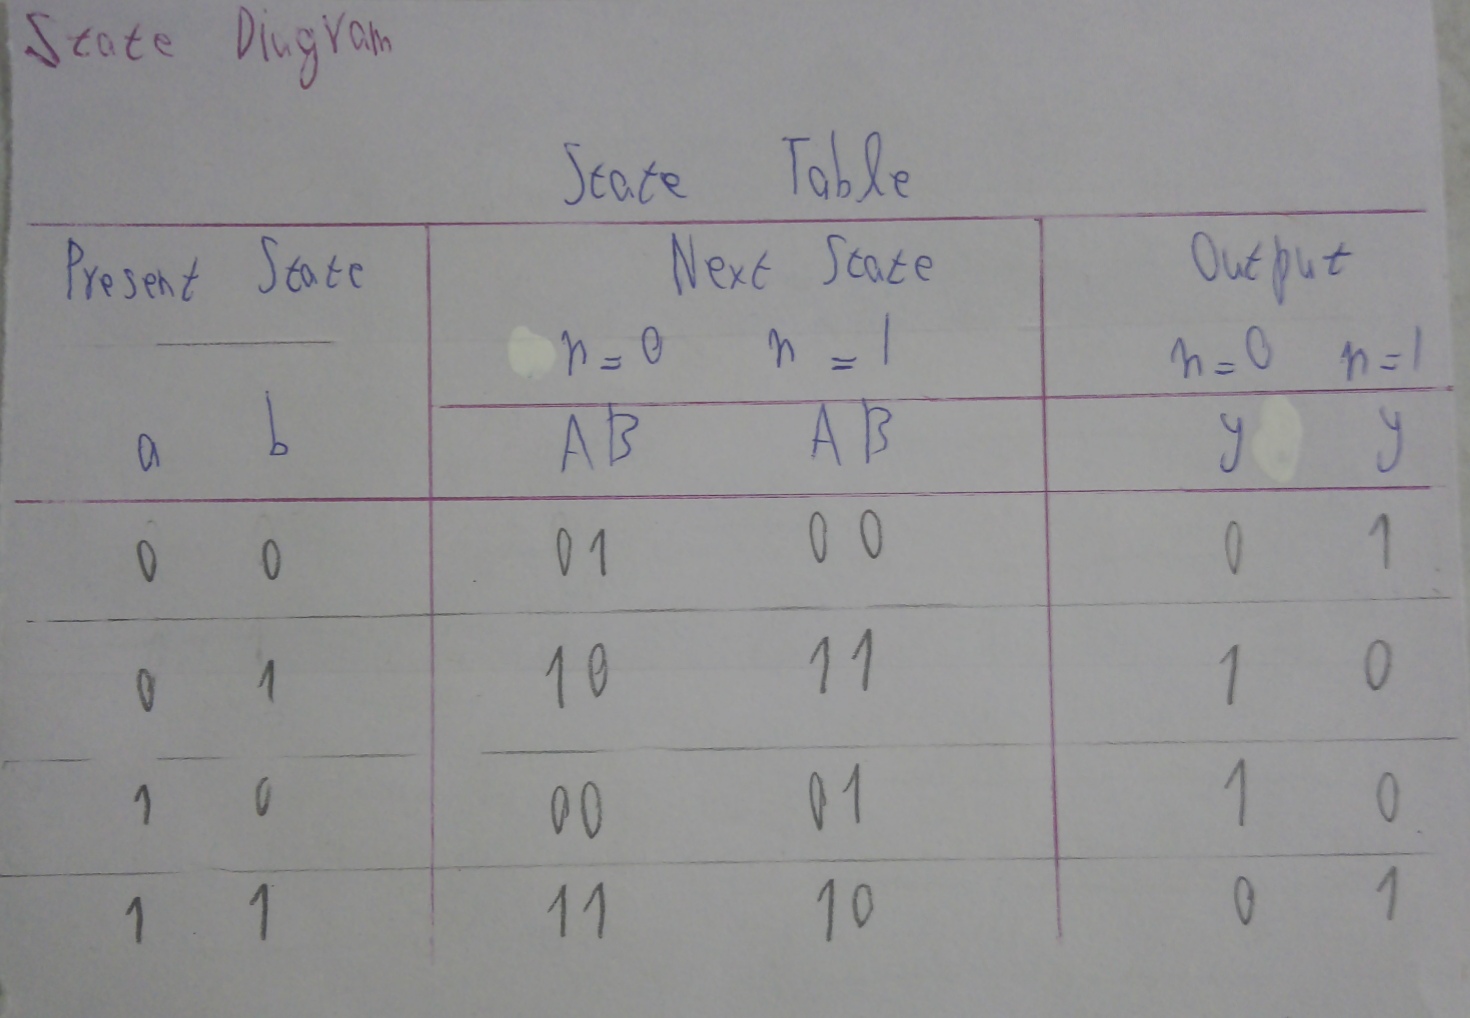 State Diagram
State Table
Present State Next State Output
n=0 n=1 n=0 n=1
a b AB AB y y
0 0 01 00 0 1
0 1 10 11 1 0
1 0 00 01 1 0
1 1 11 10 0 1